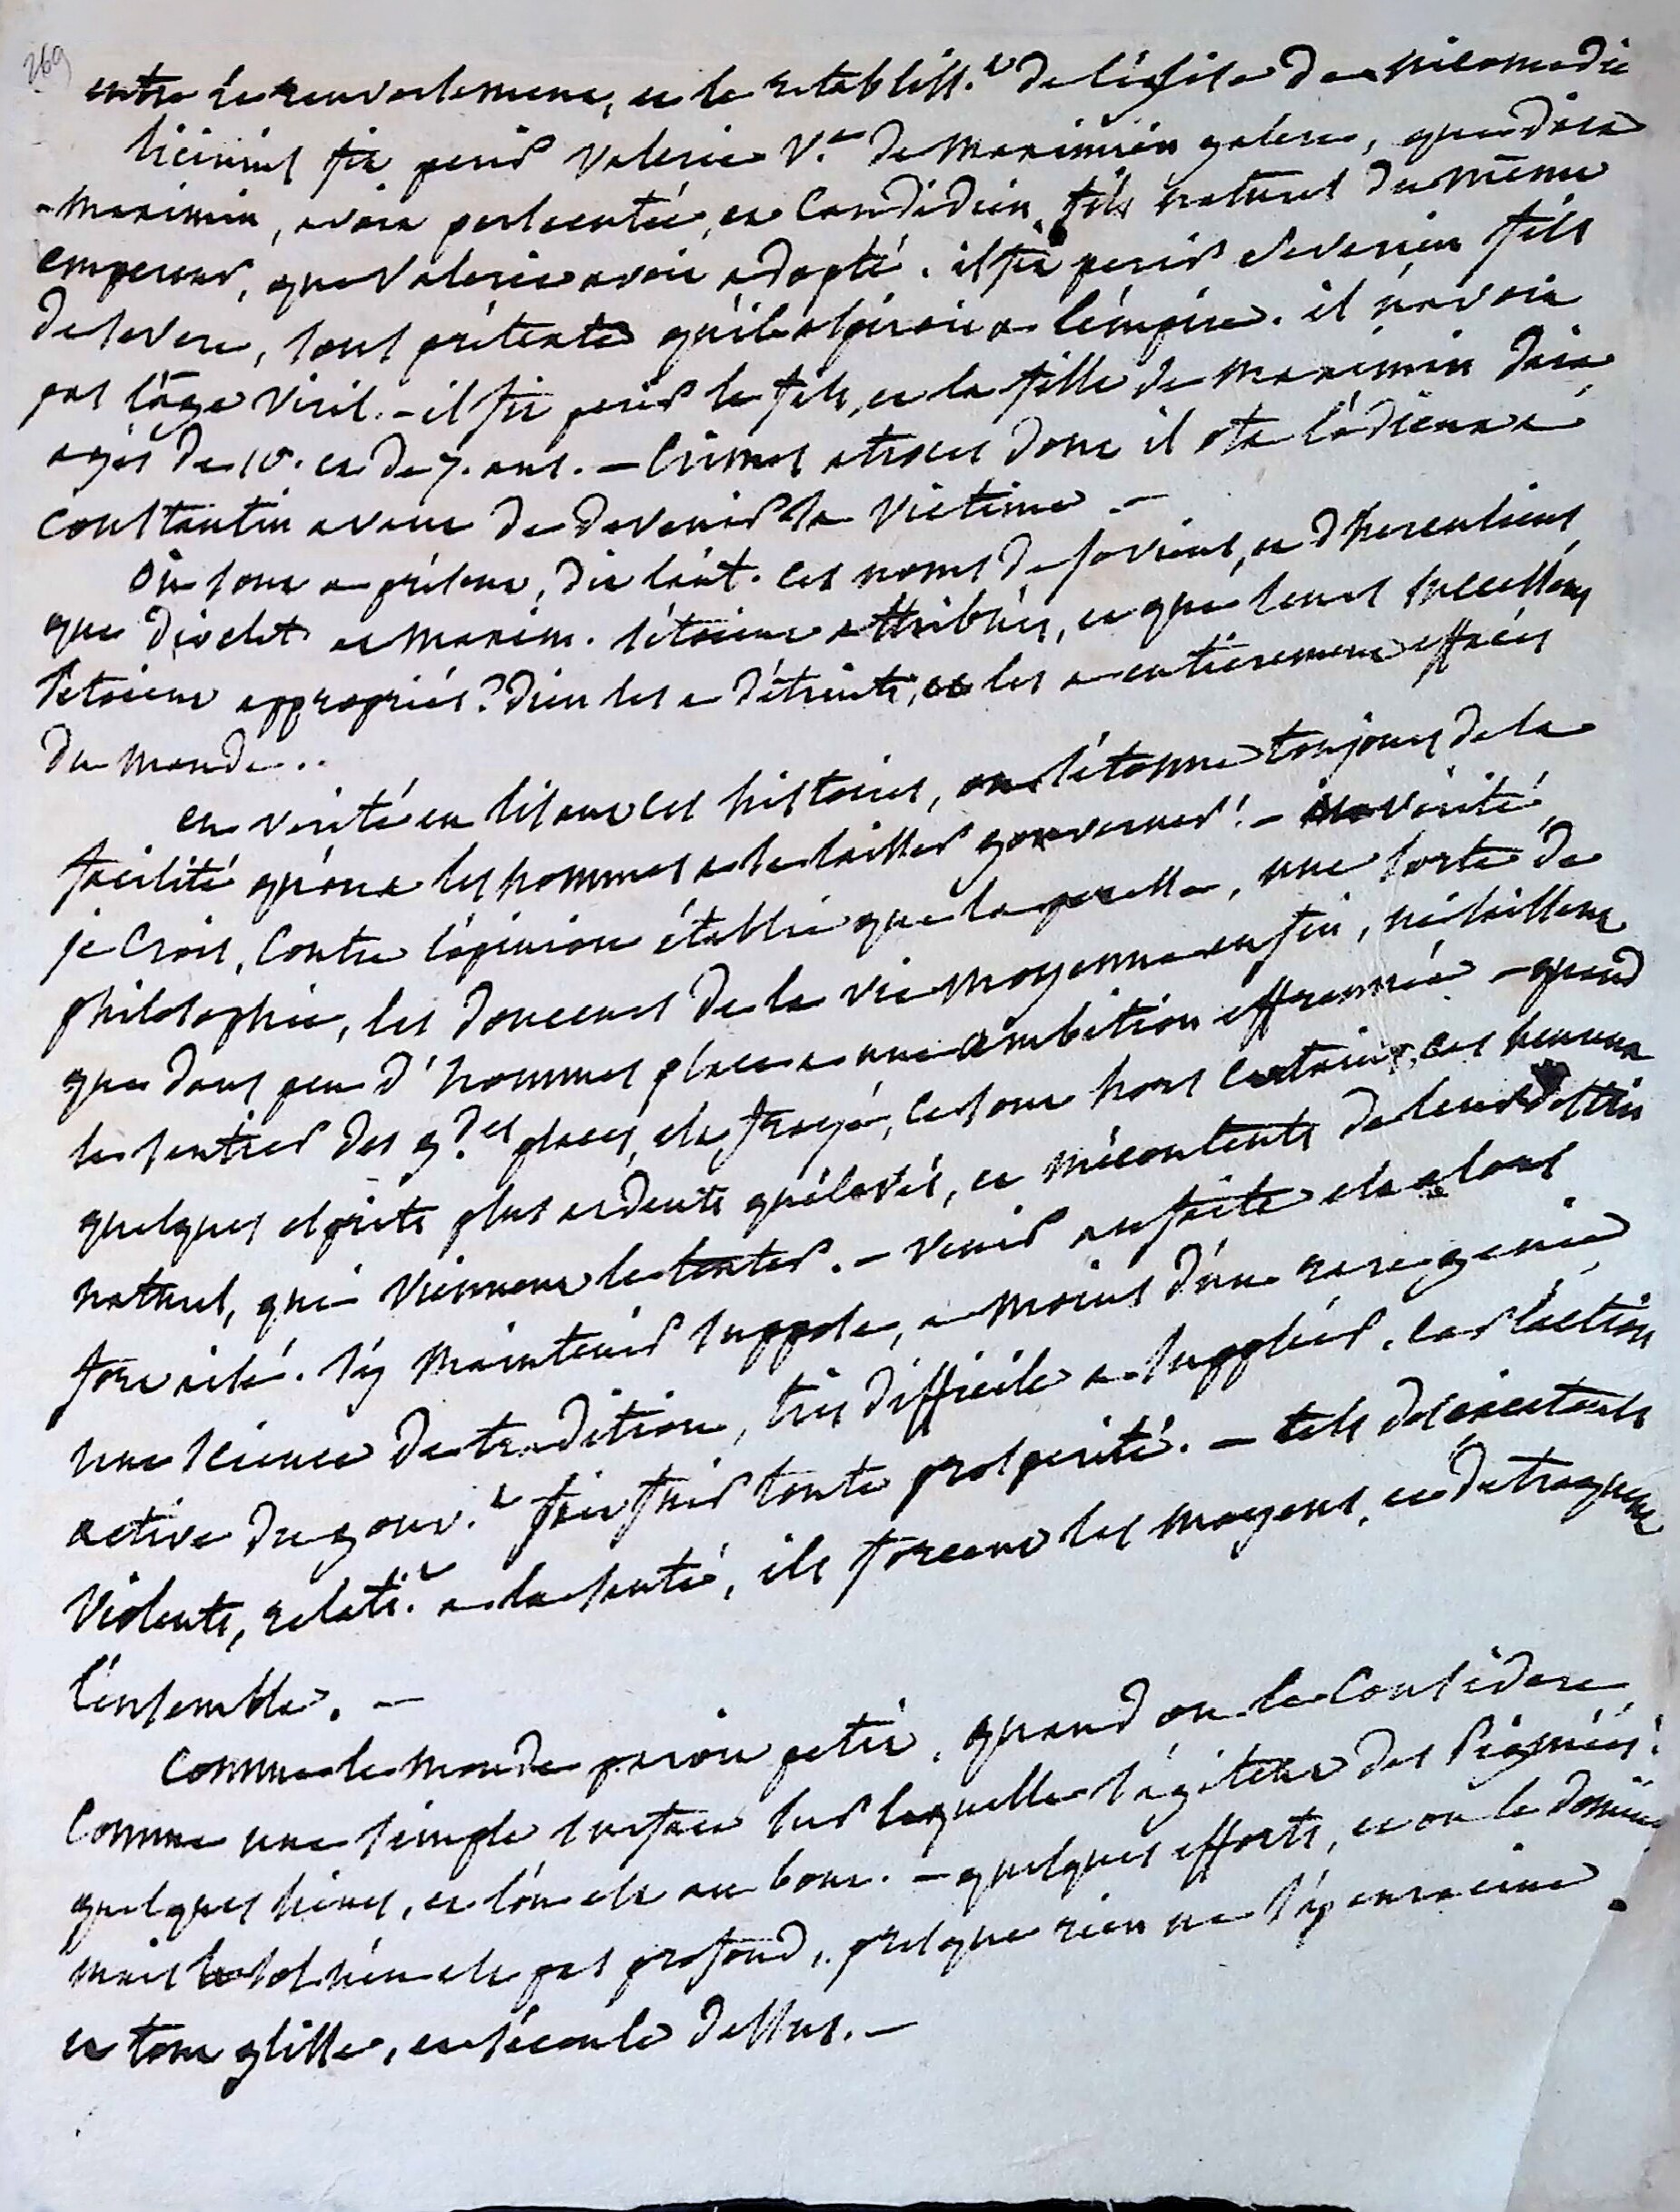 269
entre le renversement, et le rétabliss.t de l'église de Nicomédie
Licinius fit périr Valerie V.e de Maximien galère, que daia
Maximin, avoit persécutée, et Candidien, fils naturel du même
empereur, que Valerie avoit adopté. il fit périr Severien fils
de severe, sous prétexte qu'il aspiroit a l'empire. il n'avoit
pas l'âge viril. - il fit périr le fils, et la fille de Maximin Daia
agés de 10. et de 7. ans. - Crimes atroces dont il ota l'odieux a
Constantin avant de devenir sa victime -
Où sont a présent, dit Lact. ces noms de joviens, et d'herculiens,
que Dioclet et Maxim. s'étoient attribués, et que leurs successeurs
s'étoient appropriés? Dieu les a détruits, et les a entièrement effacés
du monde..
en verité en lisant ces histoires, on s'étonne toujours de la
facilité qu'ont les hommes a se laisser gouverner! - en verité,
je crois, contre l'opinion établie que la paresse, une sorte de
philosophie, les douceurs de la vie moyenne enfin, ne laissent
que dans peu d'hommes place a une ambition effrennée - quand
le sentier des g.des places, est frayé, ce sont hors certains cas
quelques esprits plus ardents qu'élevés, et mécontents de leur destin
naturel, qui viennent le tenter. - Venir au faîte est alors
fort aisé. s'y maintenir suppose, a moins d'un rare genie,
une science de tradition, très difficile a suppléer. car l'action
active du gouv.t fait fuir toute prosperité. - tels des excitants
violents, relati.t a la santé, ils forcent les moyens, et détraquent
l'ensemble. -
Comme le monde paroit petit, quand on le considere,
comme une simple surface sur laquelle s'agitent des Pigmées!
quelques lieues, et l'on est au bout. - quelques efforts, et on le domine
mais le sol n'en est pas profond, presque rien ne s'y enracine
et tout glisse, et s'écoule dessus. -